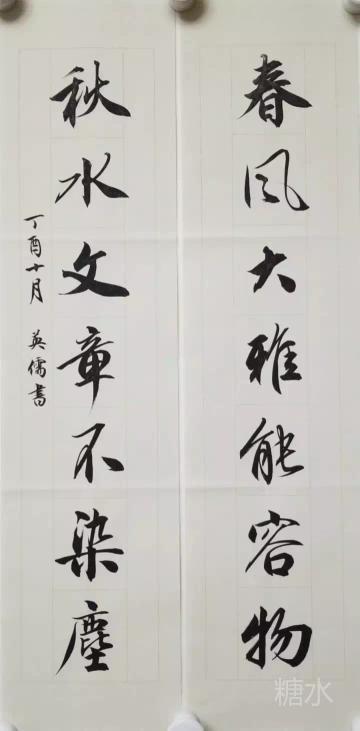 春风大雅能容物
秋水文章不染塵
丁酉十月 英儒書
糖水